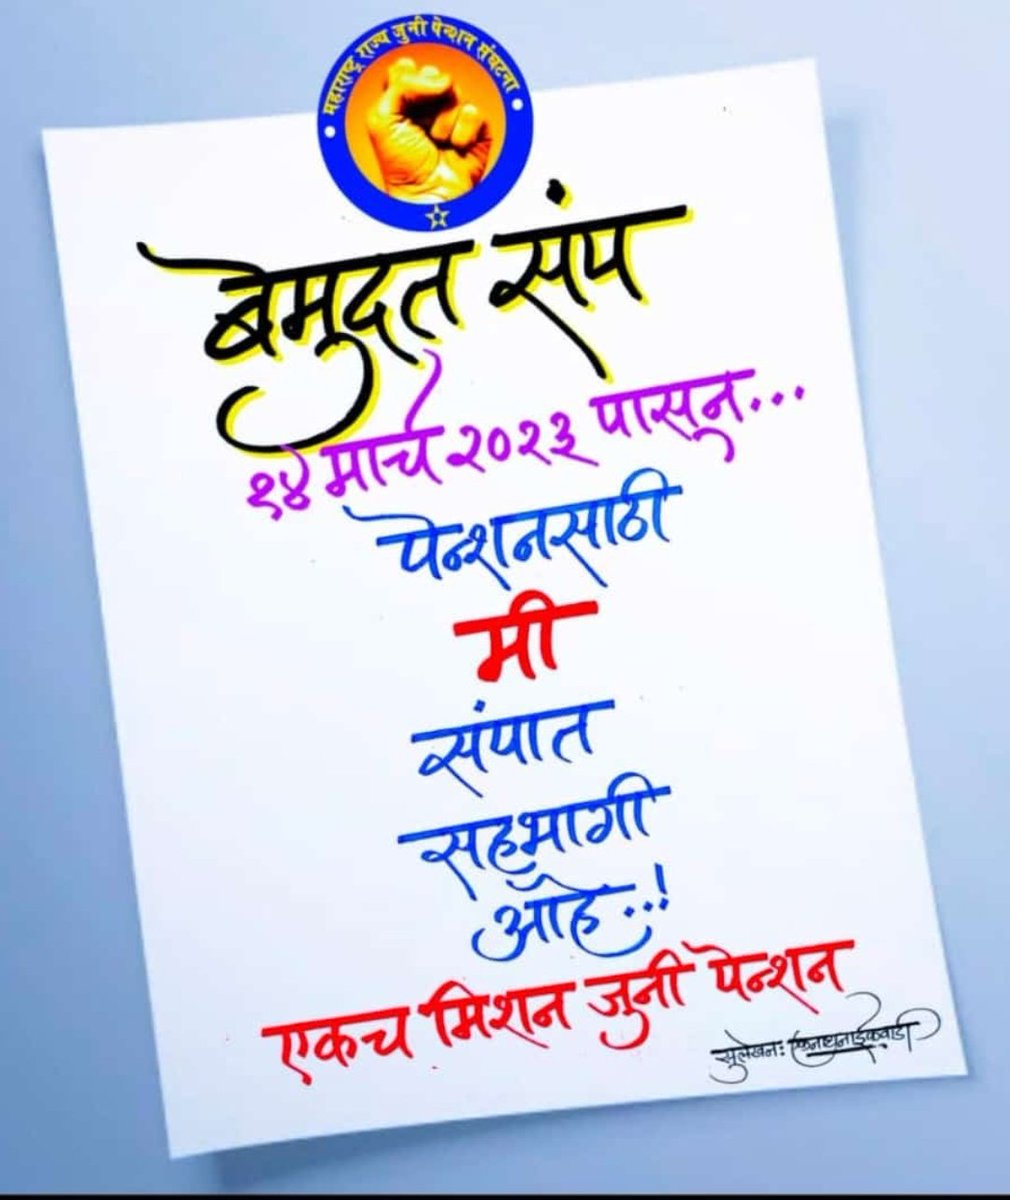 महाराष्ट्र राज्य जुनी पेन्शन संघटना
बेमुदत संप
१४ मार्च २०२३ पासून...
पेन्शनसाठी
मी
संपात
सहभागी
आहे...!
एकच मिशन जुनी पेन्शन
सुलेखन: